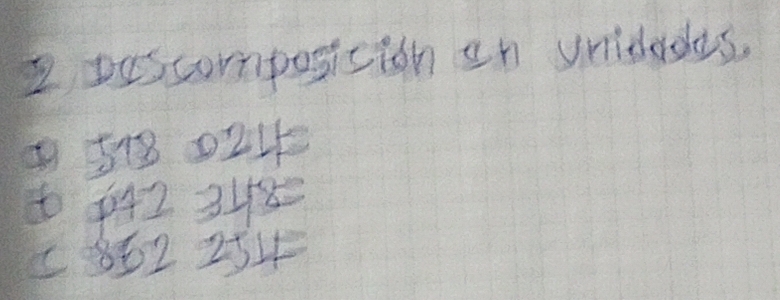 2, Descomposición en unidades.
a) 518 024=
b 642 348=
c 852 254=